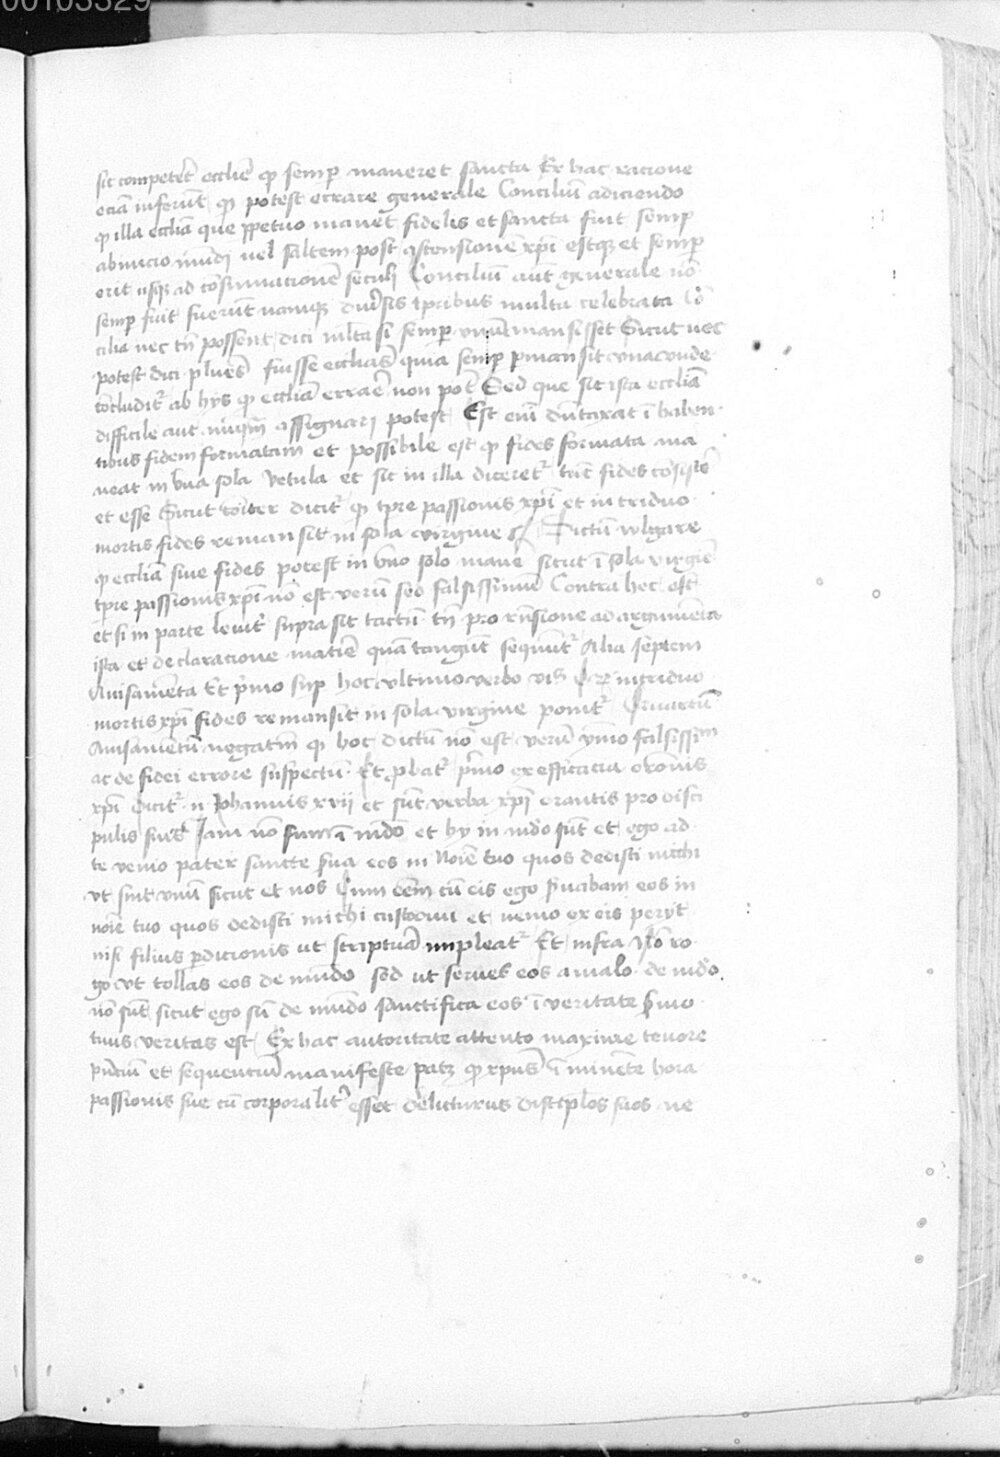 00103329
sic competeret ecclie qp semp maneret sancta Ex hac racione
eciam inferunt qp potest errare generale Conciliu adiciendo
qp illa ecclia que ppetuo manet fidelis et sancta fuit semp
ab inicio mudi vel saltem post ascensione xpi estqz et semp
erit usqz ad consumacione seculi Conciliu aut generale no
semp fuit fuerut namqz diusis tpribus multa celebrata Co
cilia nec tn possent dici multa si semp unu mansisset Sicut nec
potest dici plures fuisse ecclias quia semp pmansit una unde
concludit ab hys qp eccliam errare non pot Sed que sit ista ecclia
difficile aut nuqm assignari potest Est eni dutaxat i haben
tibus fidem formatam et possibile est qp fides formata ma
neat in una sola vetula et sic in illa diceret tuc fides cosiste
et esse Sicut coiter dicit qp tpre passionis xpi et in triduo
mortis fides remansit in sola virgine Dictu vlgare
qp ecclia siue fides potest in vno solo mane sicut i sola virgie
tpre passionis xpi no est veru sed falsissimu Contra hec est
et si in parte leuit supra sit tactu tn pro rnsione ad argumeta
ista et declaracione matie qua tangut sequut Alia septem
Auisameta Et pmo sup hoc vltimo verbo vis qp in triduo
mortis xpi fides remansit in sola virgine ponit Quartu
Auisametu negatm qp hoc dictu no est veru ymo falsissim
ac de fidei errore suspectu Et pbat pmo ex efficacia oronis
xpi Dicit n Johannis xvij et sut verba xpi orantis pro disci
pulis suis Jam no sum i mudo et hy in mudo sut et ego ad
te venio pater sancte sua eos in noie tuo quos dedisti michi
vt sint unu sicut et nos Cum eem cu eis ego suabam eos in
noie tuo quos dedisti michi custodiui et nemo ex eis peryt
nisi filius pdicionis ut scriptura impleat Et infra No ro
go vt tollas eos de mudo sed ut serues eos a malo de mudo
no sut sicut ego su de mudo sanctifica eos i veritate smo
tuus veritas est Ex hac autoritate attento maxime tenore
pndciu et sequenciu manifeste patz qp xpus iminete hora
passionis sue cu corporalit esset delicturus discplos suos ne